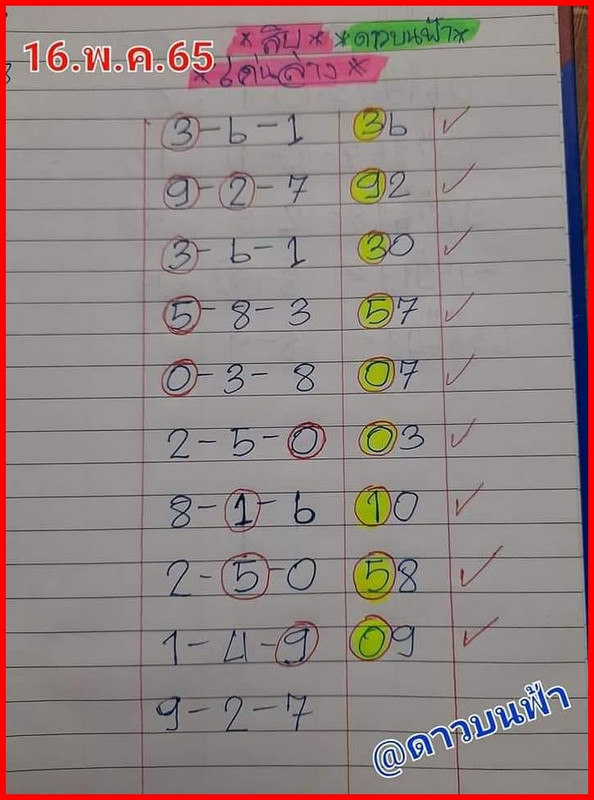 *สิบ* *ดาวบนฟ้า*
16.พ.ค.65
*เด่นล่าง*
3-6-1 36 ✓
9-2-7 92 ✓
3-6-1 30 ✓
5-8-3 57 ✓
0-3-8 07 ✓
2-5-0 03 ✓
8-1-6 10 ✓
2-5-0 58 ✓
1-4-9 09 ✓
9-2-7
@ดาวบนฟ้า